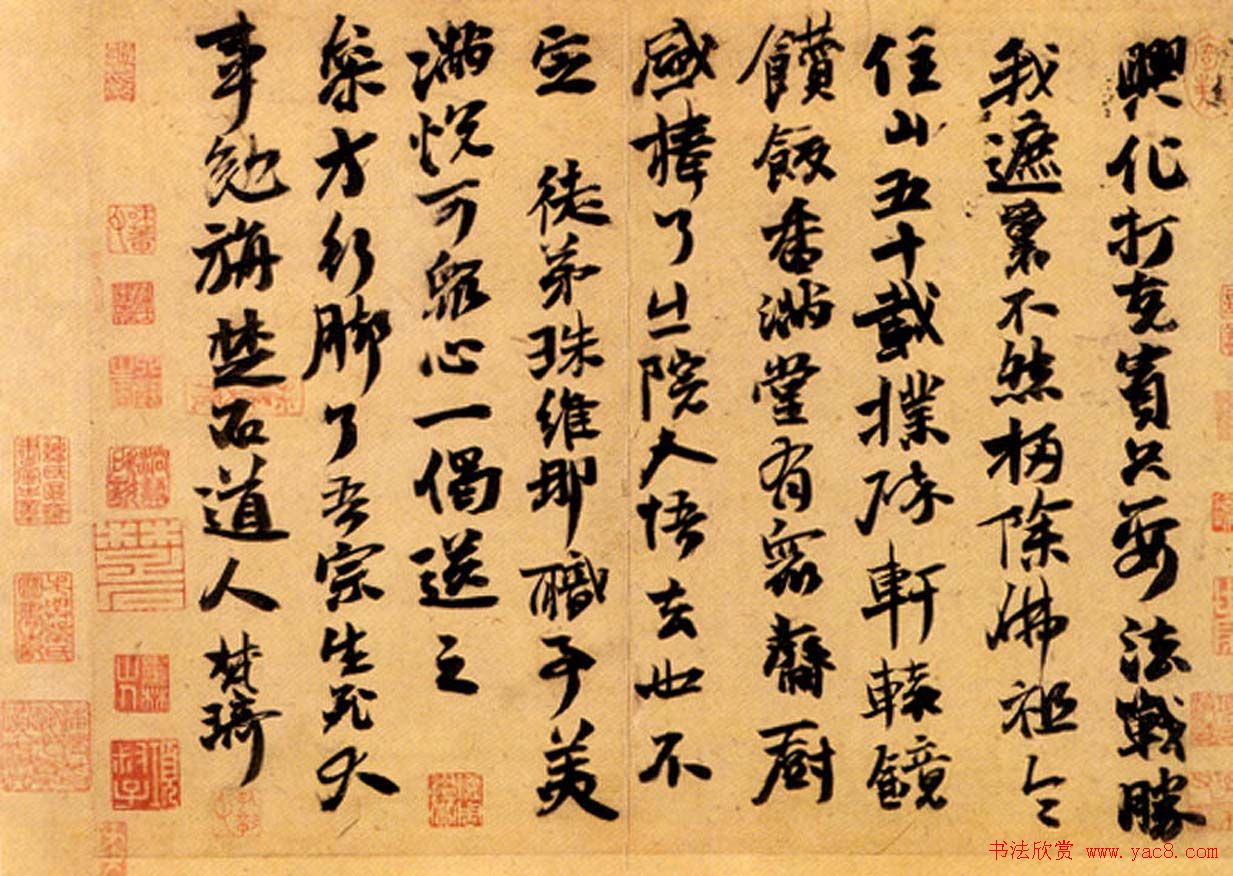 興化打克賓只要法戰勝
我遮裏不然柄除佛祖令
住山五十載撲碎軒轅鏡
饡飯香滿堂有眾齋廚
盛棒了出院大悟去也不
定 徒弟珠維那職事美
滿悅可眾心一偈送之
參方行脚了吾宗生死大
事勉旃楚石道人梵琦
书法欣赏 www.yac8.com